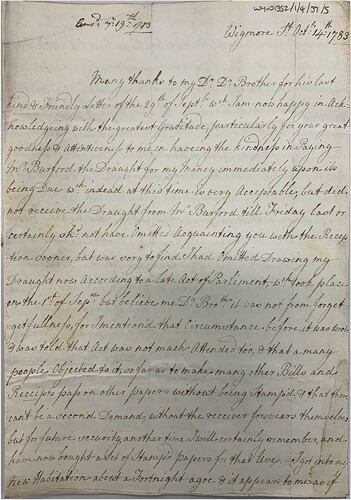 WYW1352/1/4/31/5
Wigmore St. Octr. 14th 1783
Many thanks to my Dr. Dr. Brother for his last
kind & Friendly Letter of the 29th of Sept. wch I am now happy in Ack-
nowledgeing with the greatest Gratitude, particularly for your great
goodness & Attentiveness to me in haveing the kindness in Paying
Mr. Burford the Draught for my Money immediately upon its
being Due wch indead at this time is very Acceptable, but did
not receive the Draught from Mr. Burford till Friday last or
certainly shd. not have Omitted Acquainting you with the Recep
tion sooner, but was sory to find I had Omitted Drawing my
Draught now According to a late Act of Parliment, wch took place
on the 1st of Sepr. but believe me Dr. Brothr it was not from forget
-getfullness, for I mentiond that Circumstance before it was wrote
& was told that Act was not much Attended too, & that a many
people Objected to it so far as to make many other Bills and
Receipts pass on other papers without being Stamp'd & that there
can't be a second Demand, without the receiver forswears themselves
but for future security, another time I will certainly remember, and
have now bought a Set of Stamp'd papers for that Use. I got into my
new Habitation about a Fortnight agoe & it appears to me as if